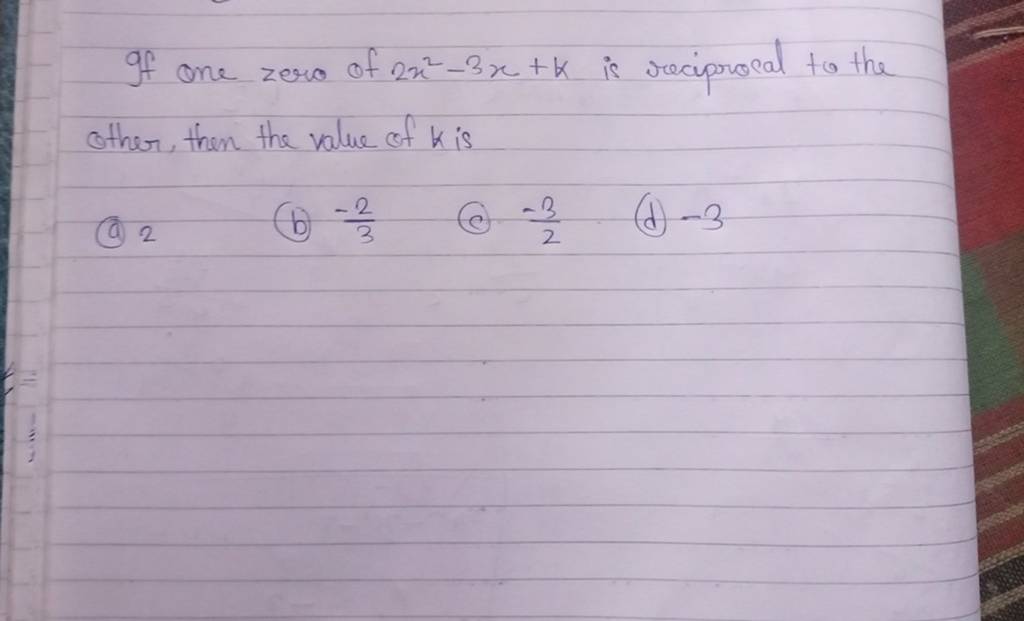 If one zero of 2x² - 3x + k is reciprocal to the
other, then the value of k is
ⓐ 2 ⓑ -2/3 ⓒ -3/2 ⓓ -3